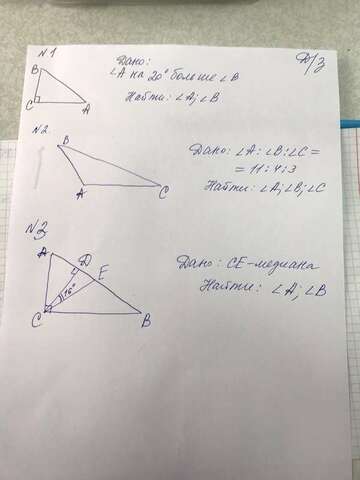 Д/з
N1
Дано:
∠A на 20° больше ∠B
Найти: ∠A; ∠B
B
C
A
N2
B
A
C
Дано: ∠A : ∠B : ∠C =
= 11 : 4 : 3
Найти: ∠A; ∠B; ∠C
N3
A
D
E
C
15°
B
Дано: CE - медиана
Найти: ∠A; ∠B